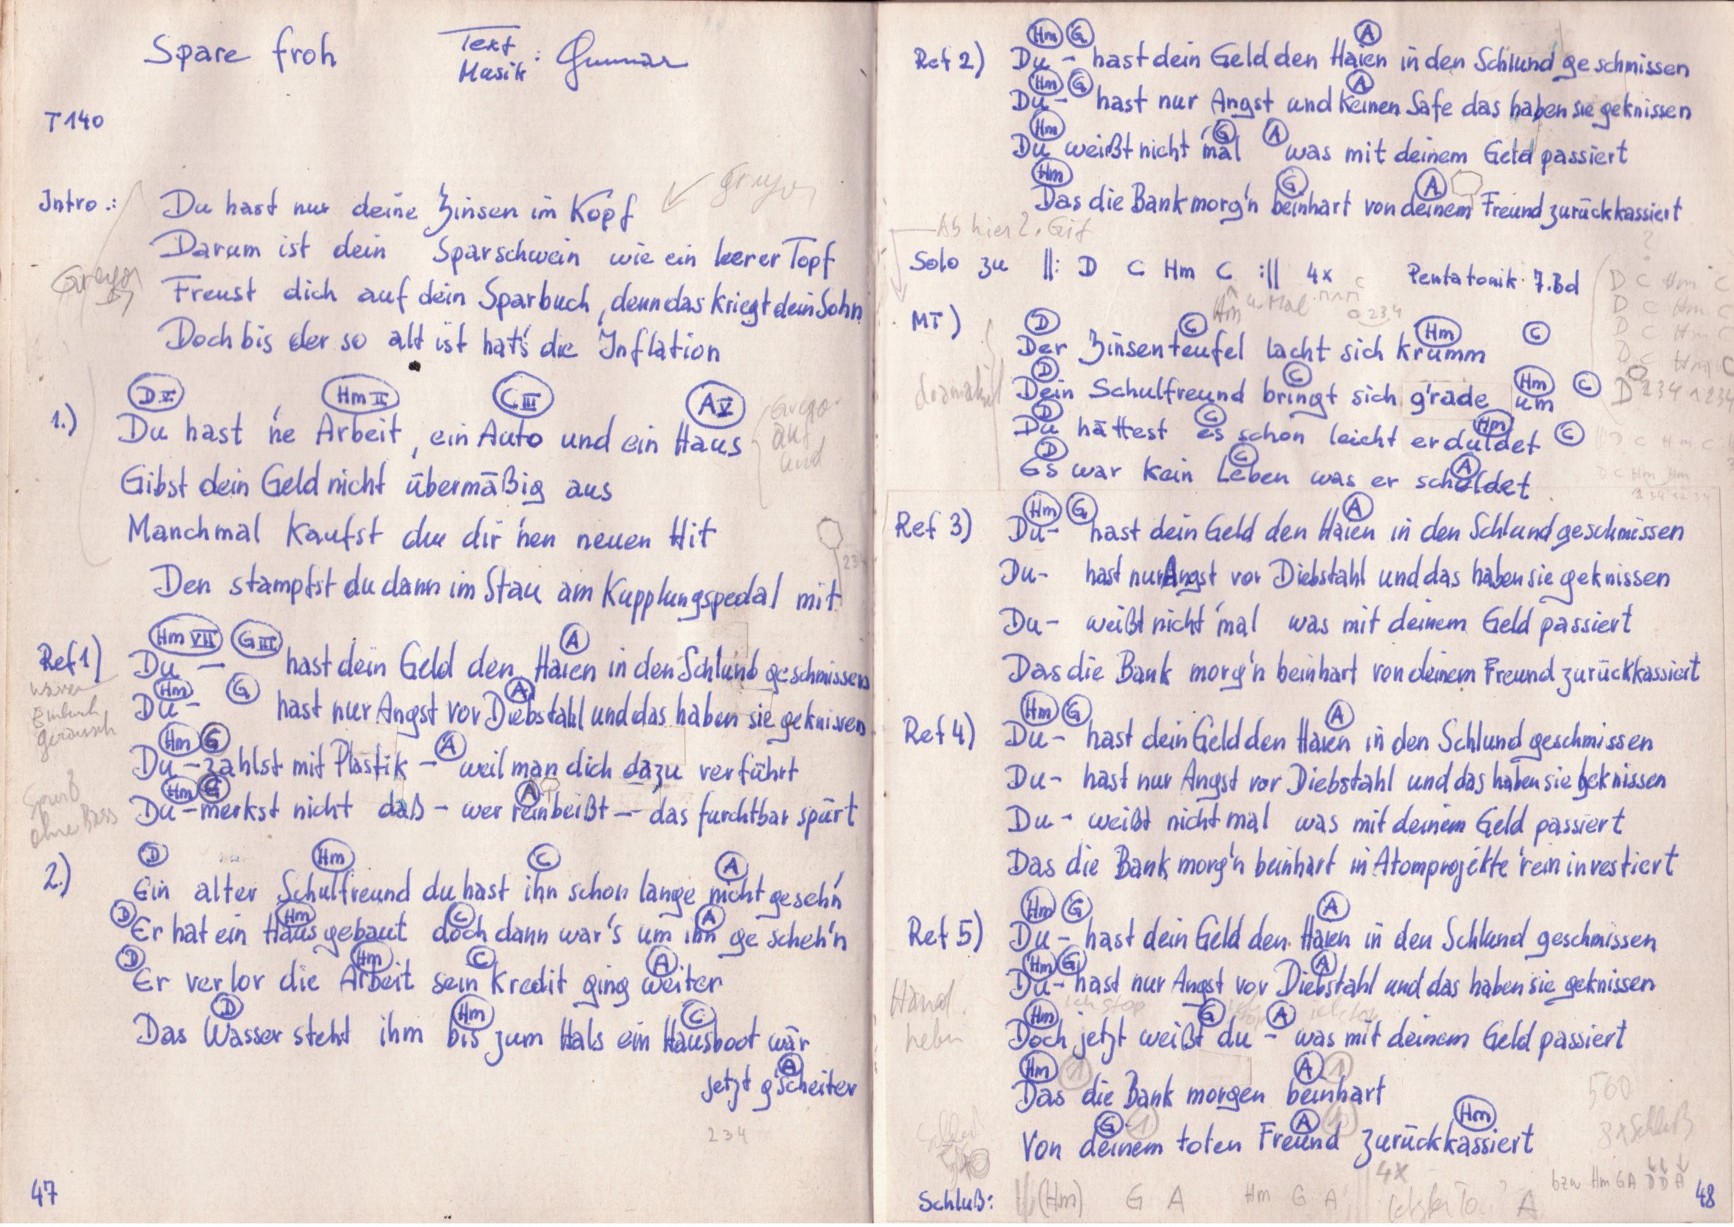 Spare froh
Text
Musik : Gunnar
T 140
Intro.: Du hast nur deine Zinsen im Kopf
Gregor
Darum ist dein Sparschwein wie ein leerer Topf
Gregor
Freust dich auf dein Sparbuch, denn das kriegt dein Sohn
Doch bis der so alt ist hat's die Inflation
D V Hm II C III A V
1.) Du hast 'ne Arbeit, ein Auto und ein Haus
Gibst dein Geld nicht übermäßig aus
Manchmal kaufst du dir 'nen neuen Hit
Den stampfst du dann im Stau am Kupplungspedal mit
234
Hm VII G III A
Ref 1) Du - hast dein Geld den Haien in den Schlund geschmissen
Hm G A
Du - hast nur Angst vor Diebstahl und das haben sie geknissen
Hm G A
Du - zahlst mit Plastik - weil man dich dazu verführt
Hm G A
Du - merkst nicht daß - wer reinbeißt - das furchtbar spürt
ohne Bass
D Hm C A
2.) Ein alter Schulfreund du hast ihn schon lange nicht geseh'n
D Hm C A
Er hat ein Haus gebaut doch dann war's um ihn gescheh'n
D Hm C A
Er verlor die Arbeit sein Kredit ging weiter
D Hm C
Das Wasser steht ihm bis zum Hals ein Hausboot wär
A
jetzt g'scheiter
234
47
Hm G A
Ref 2) Du - hast dein Geld den Haien in den Schlund geschmissen
Hm G A
Du - hast nur Angst und keinen Safe das haben sie geknissen
Hm G A
Du weißt nicht 'mal was mit deinem Geld passiert
Hm G A
Das die Bank morg'n beinhart von deinem Freund zurückkassiert
Ab hier 2. Git
Solo zu ||: D C Hm C :|| 4x Pentatonik 7.Bd
D C Hm C
D C Hm C
D C Hm C
D C Hm C
D 234 1234
D C Hm C
D C Hm Hm
D C Hm C
MT) Der Zinsenteufel lacht sich krumm
D C Hm C
Dein Schulfreund bringt sich g'rade um
D C Hm C
Du hättest es schon leicht erduldet
D C A
Es war kein Leben was er schuldet
Hm G A
Ref 3) Du - hast dein Geld den Haien in den Schlund geschmissen
Du - hast nur Angst vor Diebstahl und das haben sie geknissen
Du - weißt nicht 'mal was mit deinem Geld passiert
Das die Bank morg'n beinhart von deinem Freund zurückkassiert
Hm G A
Ref 4) Du - hast dein Geld den Haien in den Schlund geschmissen
Du - hast nur Angst vor Diebstahl und das haben sie geknissen
Du - weißt nicht mal was mit deinem Geld passiert
Das die Bank morg'n beinhart in Atomprojekte 'rein investiert
Hm G A
Ref 5) Du - hast dein Geld den Haien in den Schlund geschmissen
Hm G A
Du - hast nur Angst vor Diebstahl und das haben sie geknissen
Hm G A
Doch jetzt weißt du - was mit deinem Geld passiert
Hm 1 A 1
Das die Bank morgen beinhart
G 1 A Hm
Von deinem toten Freund zurückkassiert
560
3x Schluß
Schluß: (Hm) G A Hm G A 4x A bzw Hm G A D D A
48